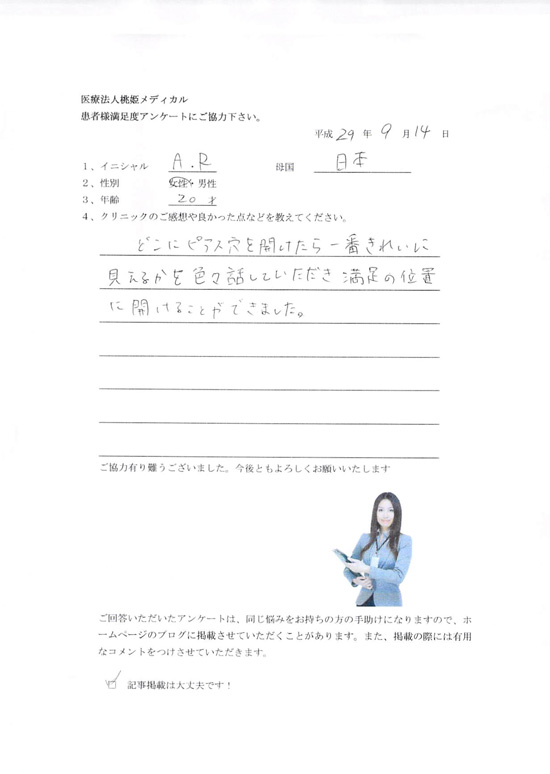 医療法人桃姫メディカル
患者様満足度アンケートにご協力下さい。
平成 29 年 9 月 14 日
1、イニシャル A.R 母国 日本
2、性別 女性・男性
3、年齢 20才
4、クリニックのご感想や良かった点などを教えてください。
どこにピアス穴を開けたら一番きれいに
見えるかを色々話していただき満足の位置
に開けることができました。
ご協力有り難うございました。今後ともよろしくお願いいたします
ご回答いただいたアンケートは、同じ悩みをお持ちの方の手助けになりますので、ホ
ームページのブログに掲載させていただくことがあります。また、掲載の際には有用
なコメントをつけさせていただきます。
☑ 記事掲載は大丈夫です！